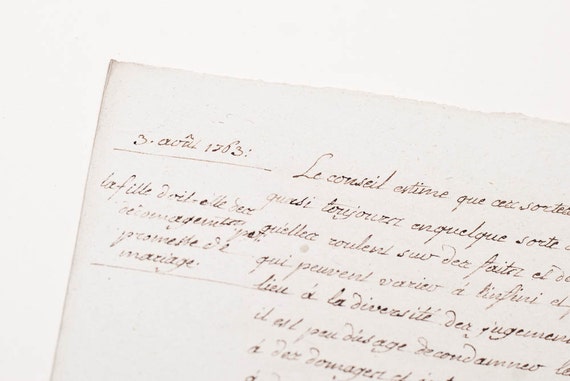 3. août 1763:
la fille doit-elle des
dédomagements per
promesse de
mariage.
Le conseil estime que ces sortes
quasi toujours en quelque sorte
qu'elles roulent sur des faits et
qui peuvent varier à l'infini et
lieu à la diversité des jugemen
il est peu d'usage de condamner le
à des domages et